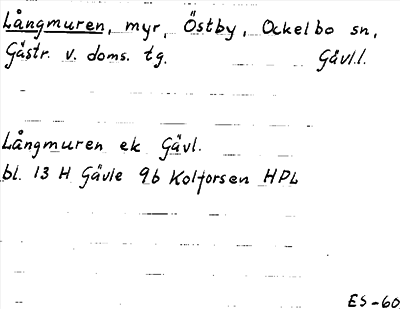 Långmuren, myr, Östby, Ockelbo sn,
Gästr. v. doms. tg. Gävl.l.
Långmuren ek Gävl.
bl. 13 H Gävle 9b Kolforsen HPL
ES-60